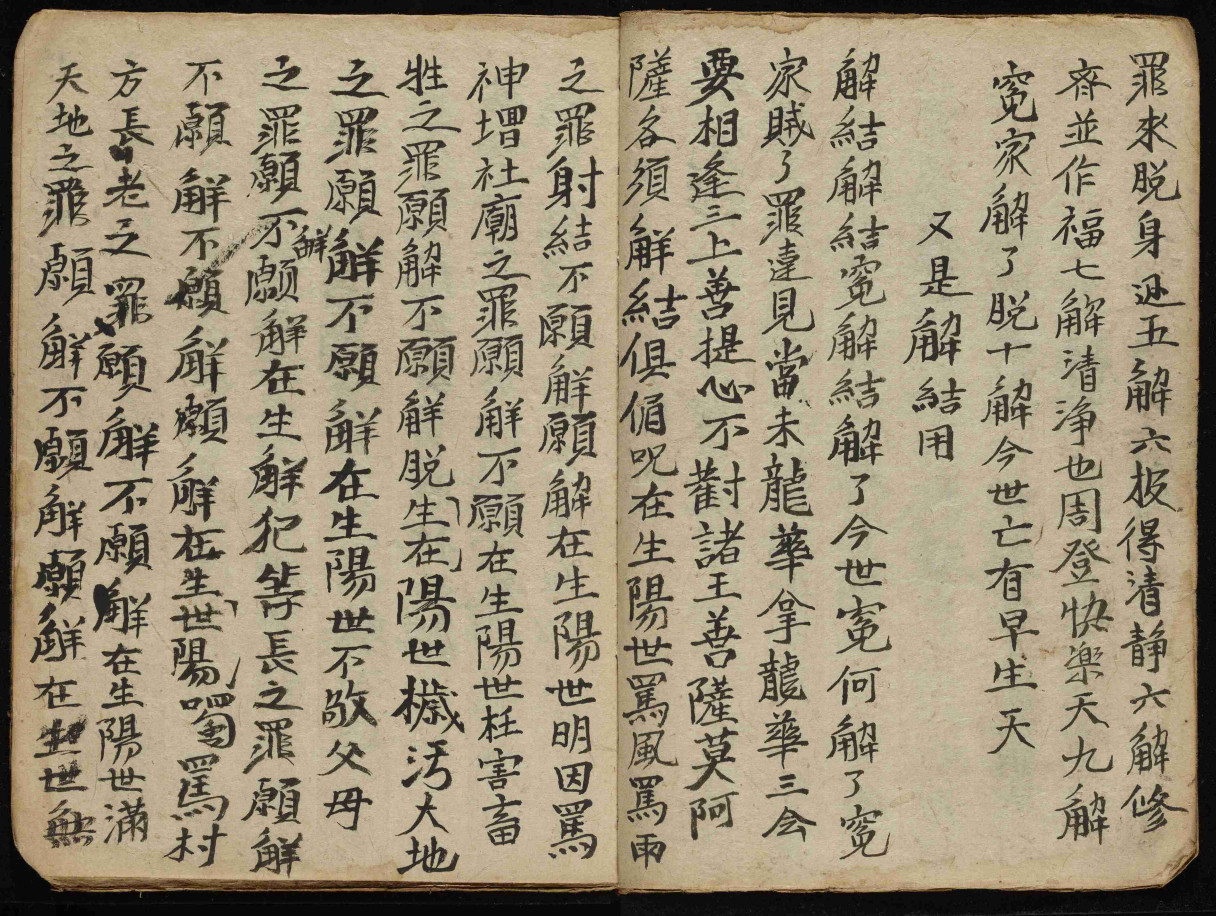 罪永脫身迯五解六板得清静六解修
齊並作福七解清浄也周登快楽天九解
寃家解了脫十解今世亡有早生天
又是解結用
解結解結寃解結解了今世寃何解了寃
家賊了罪違見當未龍華拿龍華三会
要相逢三上善提心不對諸王善薩莫阿
薩各須觧結俱偱呪在生陽世罵風罵雨
之罪射結不願觧願解在生陽世明因罵
神増社廟之罪願觧不願在生陽世枉害畜
牲之罪願解不願觧脫生在陽世穢汚大地
之罪願觧不願觧在生陽世不敬父母
之罪願不願觧在生觧犯等長之罪願觧
不願觧不願觧願觧在生世陽罵村
方長老之罪願觧不願觧在生陽世滿
天地之罪願觧不願觧願觧在生世無